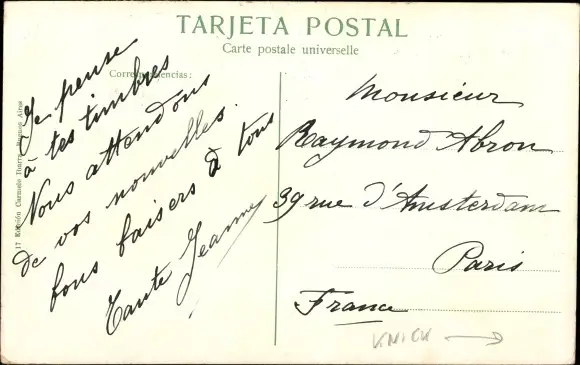 TARJETA POSTAL
Carte postale universelle
Correspondencias:
Je pense
à tes timbres
Nous attendons
de vos nouvelles.
bons baisers à tous
Tante Jeanne
Monsieur
Raymond Abron
39 rue d'Amsterdam
Paris
France
17 Edición Carmelo Ibarra, Buenos Aires